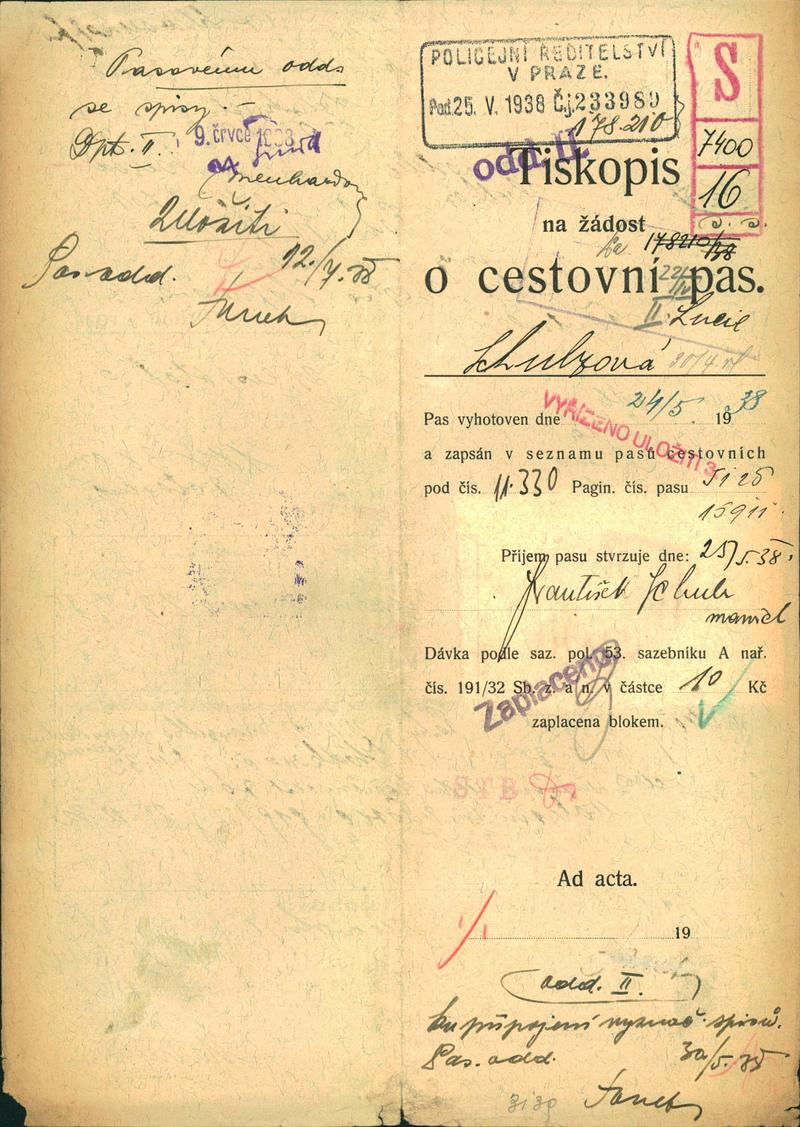 Pasovému odd.
se spisy.
Dpt. II.
9. července 1938
Uložiti
Pas. odd. 12./7. 38
POLICEJNÍ ŘEDITELSTVÍ
V PRAZE.
Pod. 25. V. 1938 Čj. 233989
178.210
S
7400
16
odd. II.
Tiskopis
na žádost
178210/38
o cestovní pas.
II Lucie
Schulzová 30/4
Pas vyhotoven dne 24/5. 1938
VYŘÍZENO ULOŽITI
a zapsán v seznamu pasů cestovních
pod čís. 11.330 Pagin. čís. pasu
15911
Příjem pasu stvrzuje dne: 25/5.38.
František Schulz
manžel
Dávka podle saz. pol. 53. sazebníku A nař.
čís. 191/32 Sb. z. a n. v částce 10 Kč
Zaplaceno
zaplacena blokem.
STB
Ad acta.
19
odd. II.
ku připojení vyznač. spisů.
Pas. odd. 30/5. 38